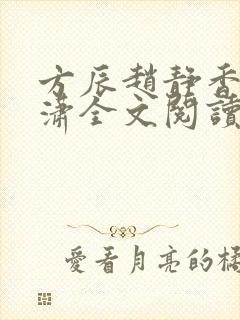 方辰趙靜香
瀟全文閱讀
愛看月亮的橘